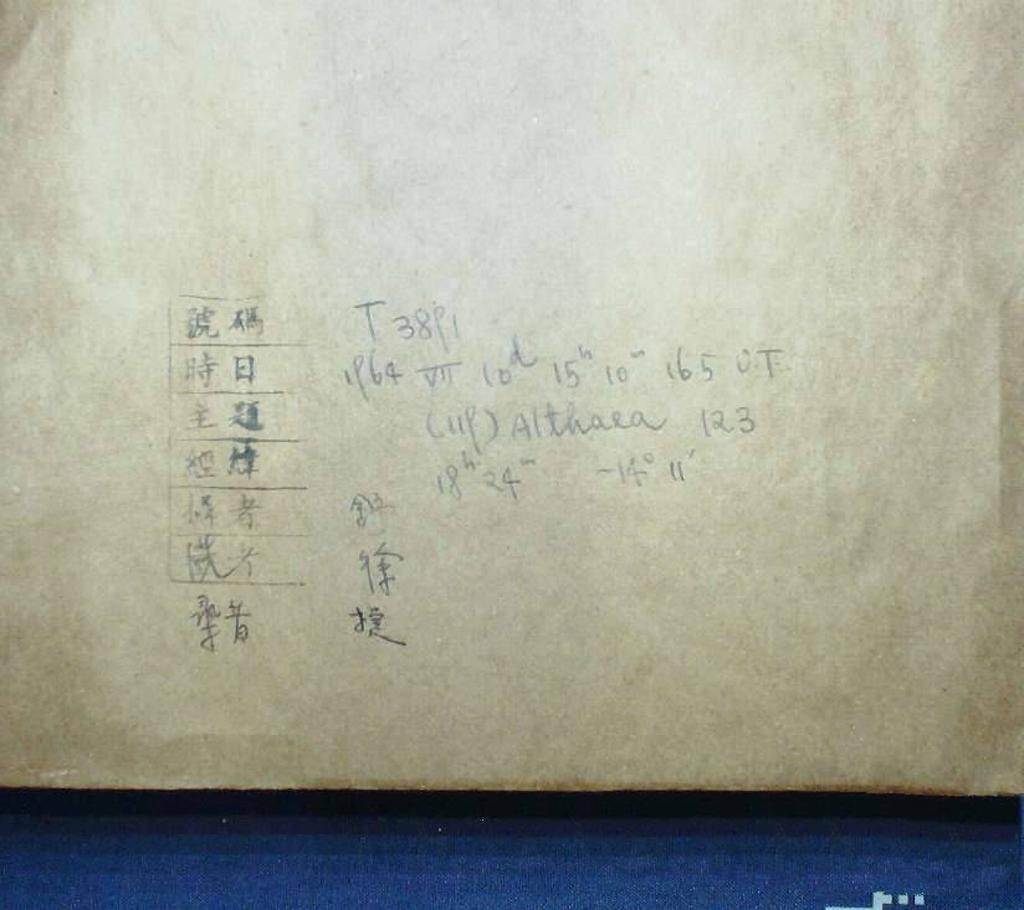 號碼 T 3891
時日 1964 VII 10d 15h 10m 165 U.T.
主題 (119) Althaea 123
經緯 18h 24m -14° 11'
者
者 徐
捷